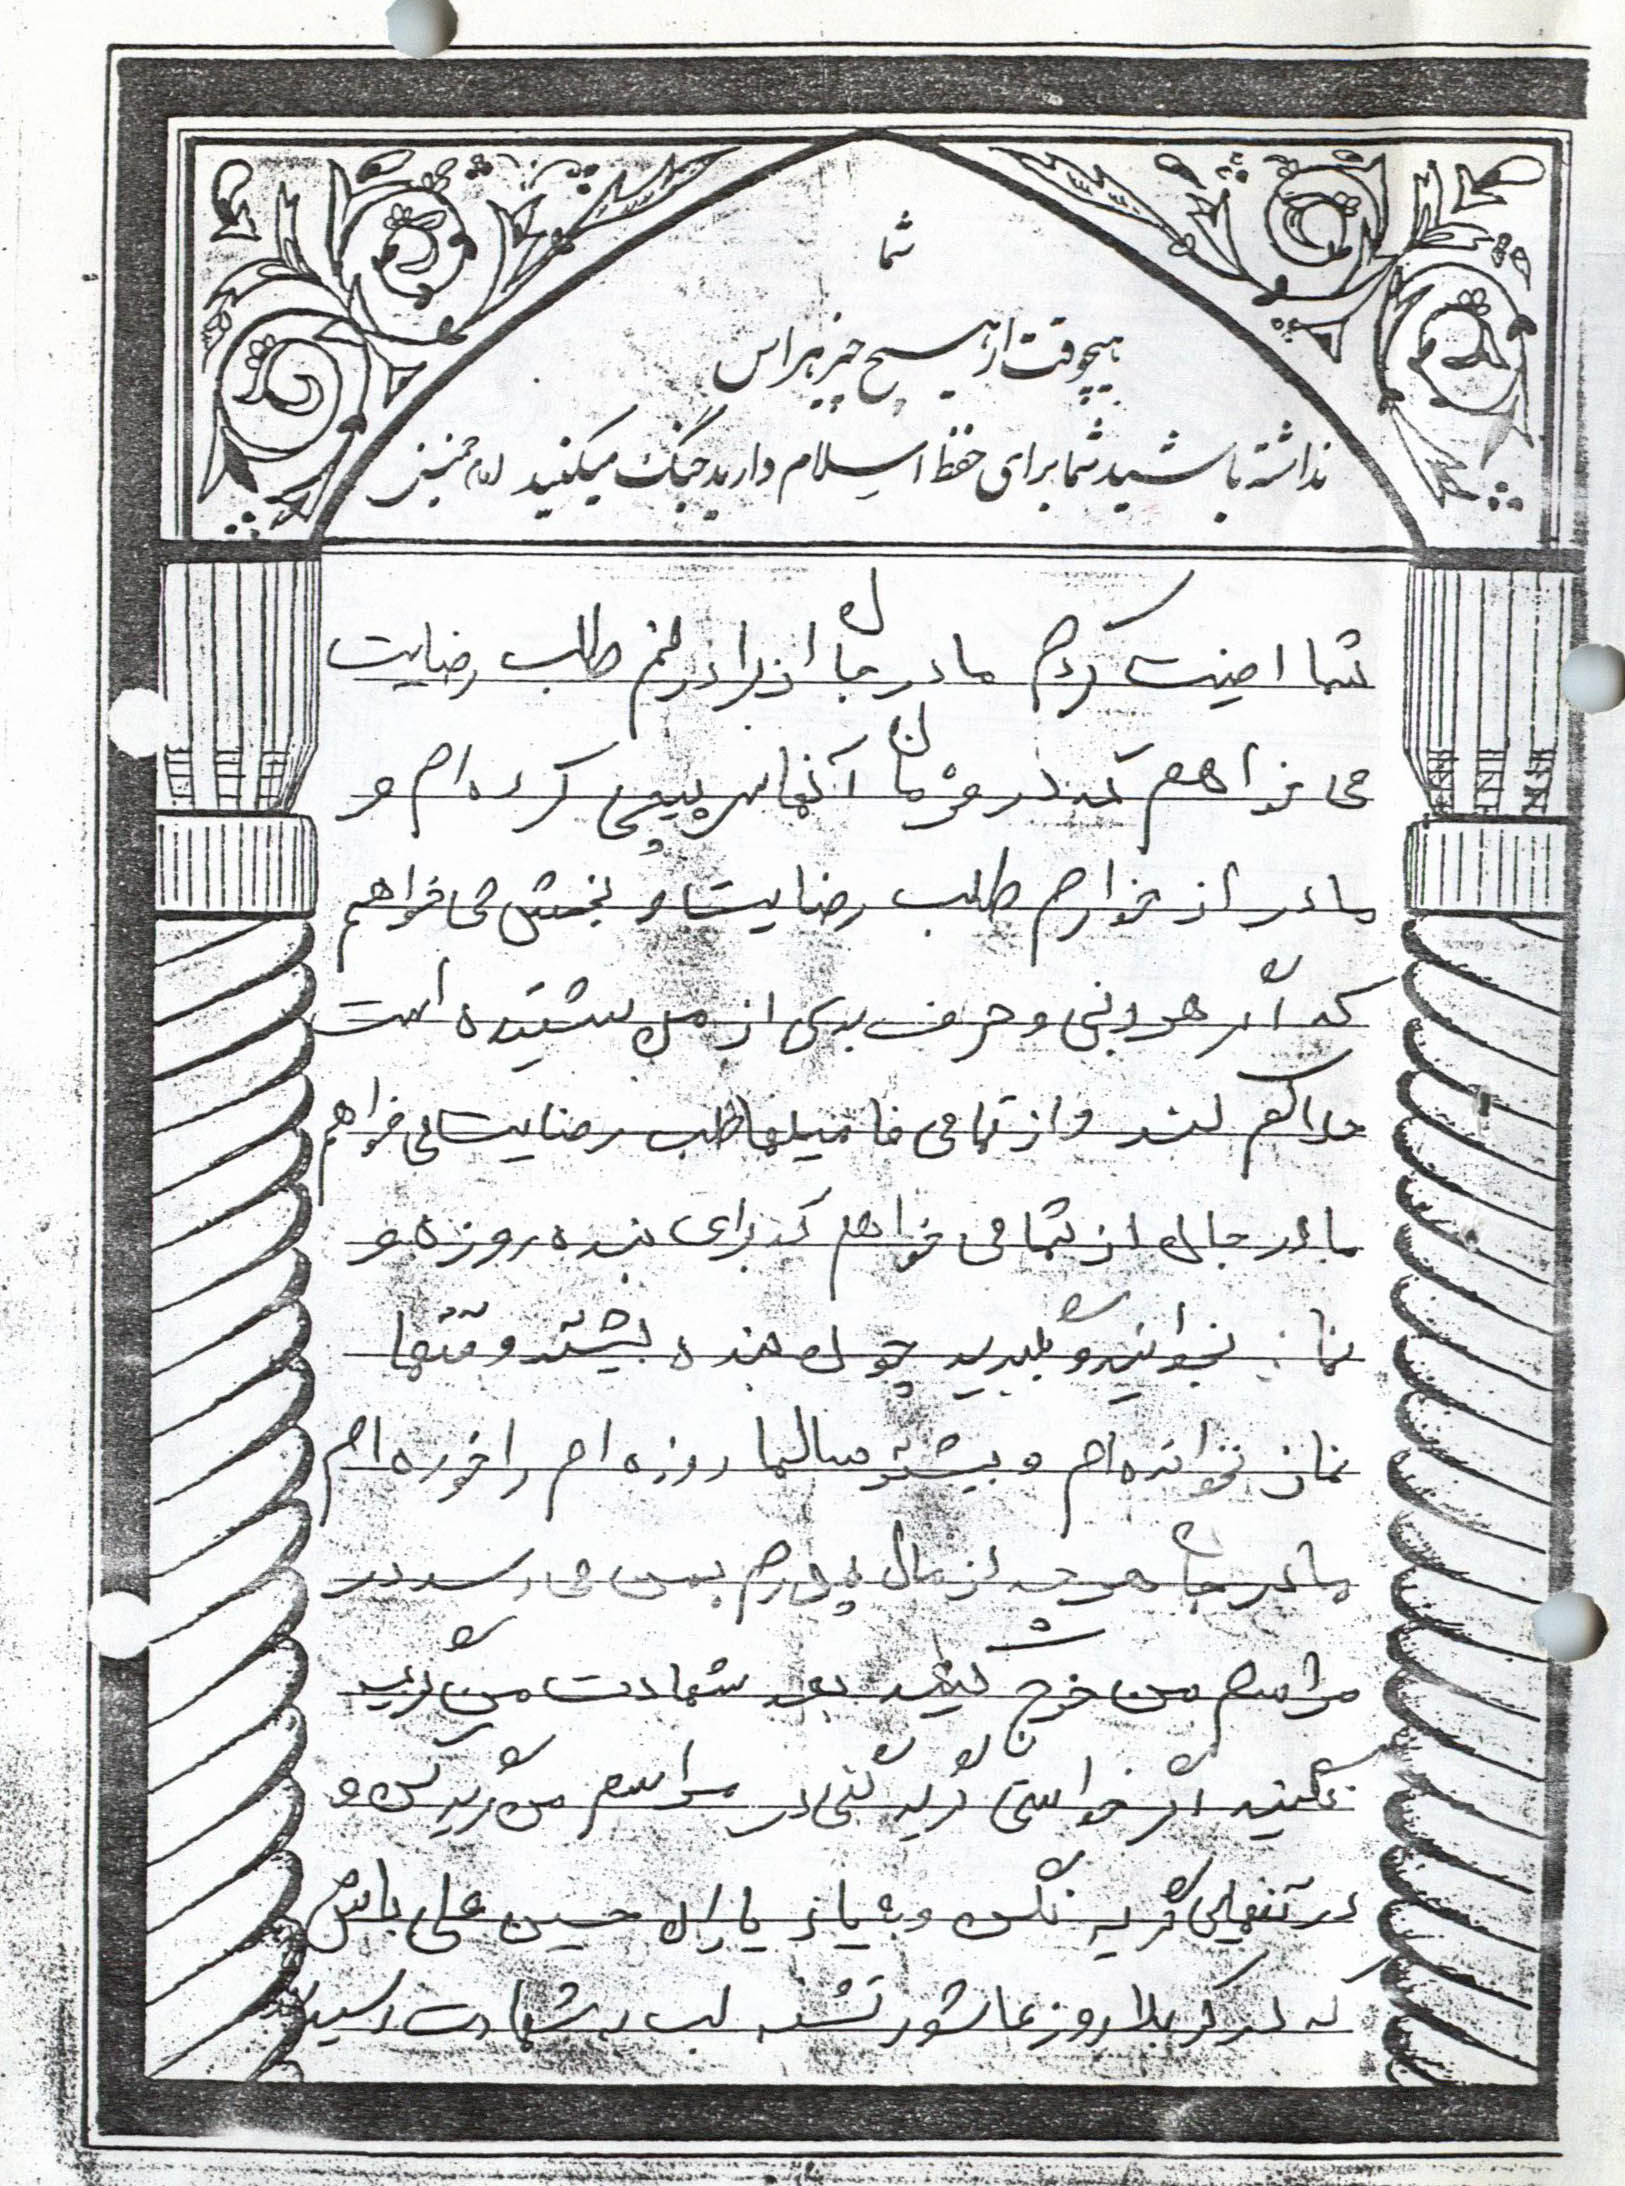 شما
هیچوقت از هیچ چیز هراس
نداشته باشید شما برای حفظ اسلام دارید جنگ میکنید امام خمینی
شما اضیت کردم مادر جان از برادرانم طلب رضایت
می خواهم که در فرمان آنها سرپیچی کرده ام و
مادر از خوارم طلب رضایت و بخشش می خواهم
که اگر هر بدی و حرف بدی از من شنیده است
حلالم کند و از تمامی فامیلها طلب رضایت می خواهم
مادر جان از شما می خواهم که برای بنده روزه و
نماز بخوانید و بگیرید چون بنده بیشتر وقتها
نماز نخوانده ام و بیشتر سالها روزه ام را خورده ام
مادر جان هر چه از مال پدرم بمن می رسد در
مراسم من خرج کنید بعد شهادت من گریه
نکنید اگر خواستی گریه کنی در مراسم من گریه نکن و
در تنهایی گریه نکن و به یاد یاران حسین علی باش
که در کربلا روز عاشور تشنه لب به شهادت رسید